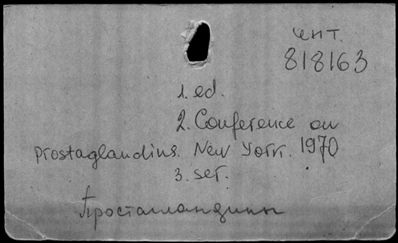 цнт.
818163
1. ed.
2. Conference on
Prostaglandins. New York. 1970
3. ser.
Простагландины